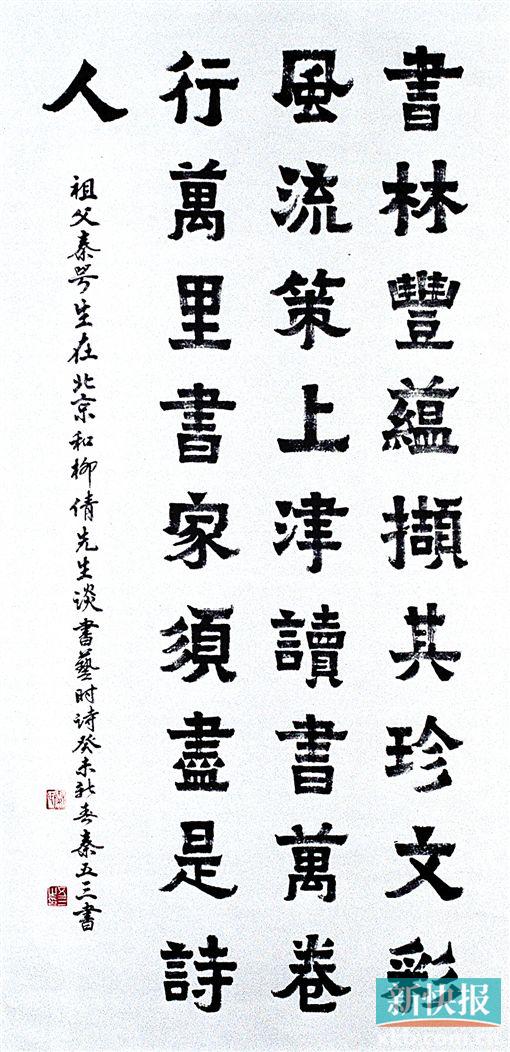 書林豐蘊擷其珍文彩
風流策上津讀書萬卷
行萬里書家須盡是詩
人
祖父秦咢生在北京和柳倩先生談書藝時詩癸未新春秦五三書
新快报
xkb.com.cn